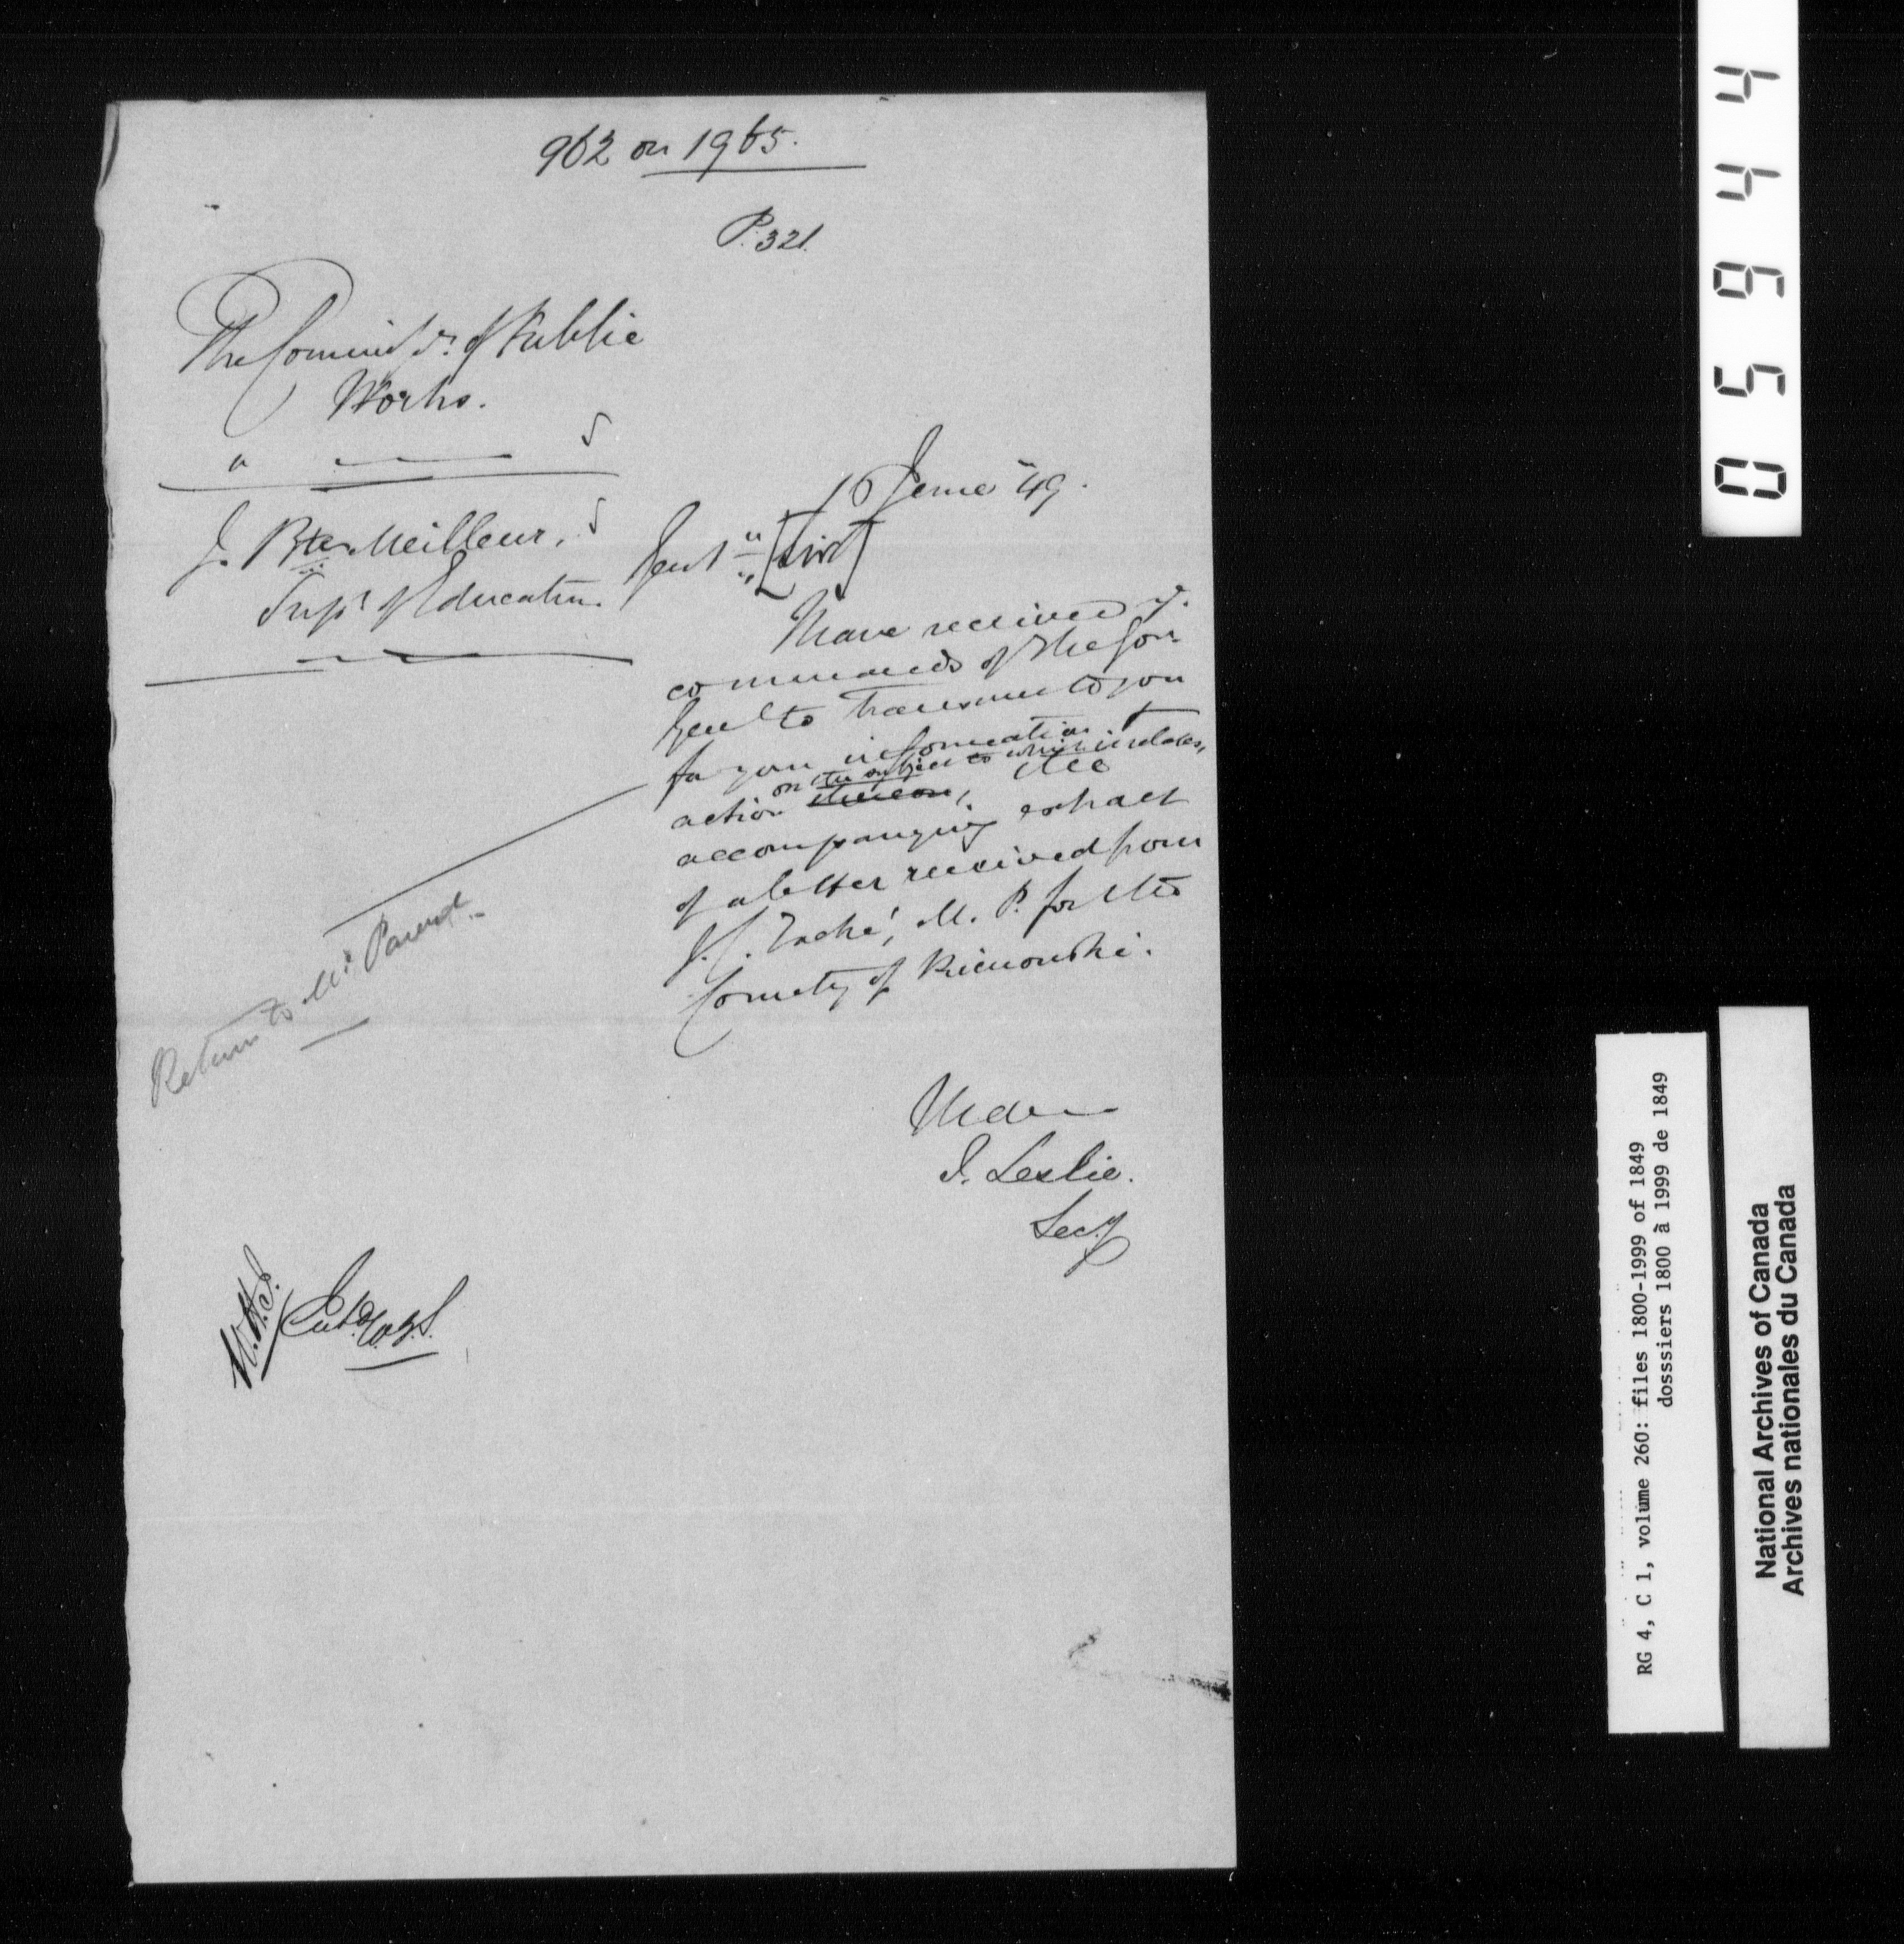 962 on 1965.
P. 321.
The Commiss.rs of Public
Works.
"
J. Bte Meilleur,
Supt of Education.
16 June "49.
Gentn [Sir]
I have received ye
commands of the Gov.
Genl to transmit to you
for your information &
on the subject to which it relates,
action thereon, the
accompanying extract
of a letter received from
J. C. Taché, M. P. for the
County of Rimouski.
Return to Mr. Parent.
I have
J. Leslie.
Secy
W.H.L.
Entd
05944
RG 4, C 1, volume 260: files 1800-1999 of 1849
dosssiers 1800 à 1999 de 1849
National Archives of Canada
Archives nationales du Canada